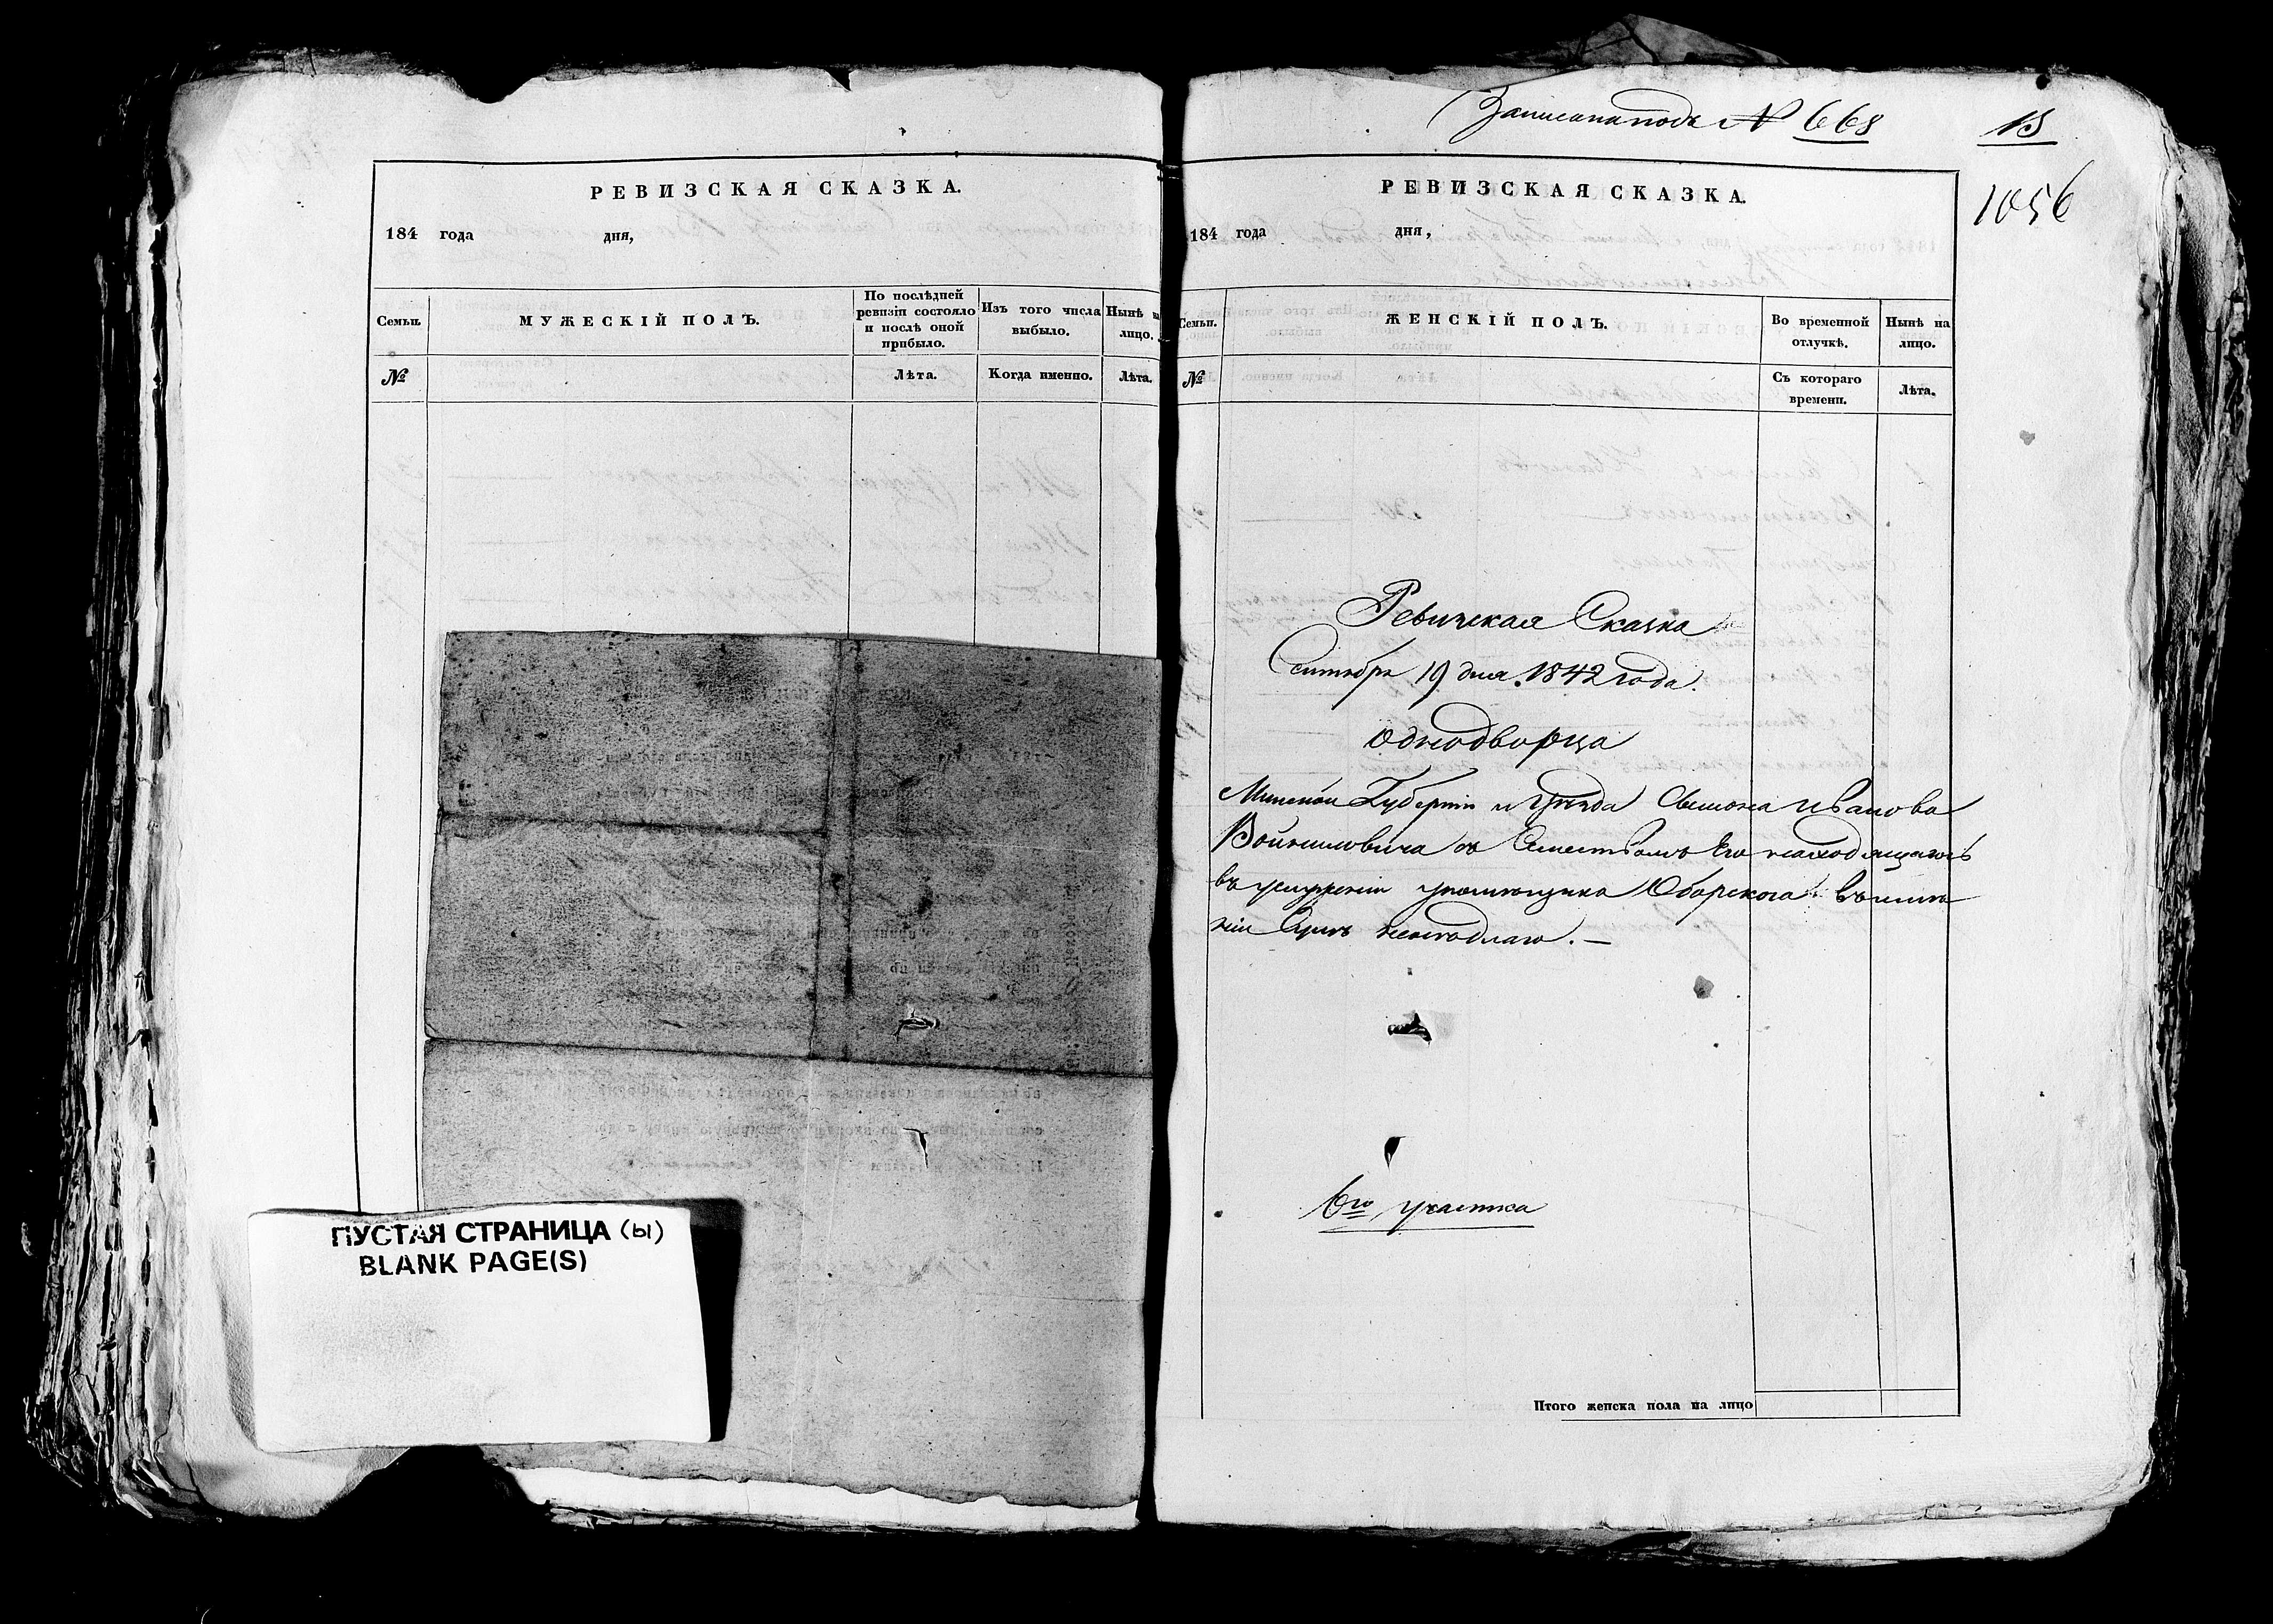 РЕВИЗСКАЯ СКАЗКА.
184 года дня,
Семьи. МУЖЕСКІЙ ПОЛЪ. По послѣдней ревизіи состояло и послѣ оной прибыло. Изъ того числа выбыло. Нынѣ на лицо.
№ Лѣта. Когда именно. Лѣта.
ПУСТАЯ СТРАНИЦА (ы)
BLANK PAGE(S)
Записана подъ № 668
15
1056
РЕВИЗСКАЯ СКАЗКА.
184 года дня,
Семьи. ЖЕНСКІЙ ПОЛЪ. Во временной отлучкѣ. Нынѣ на лицо.
№ Съ котораго времени. Лѣта.
Ревизская Сказка
Сентября 19 дня 1842 года.
Однодворца
Минской Губерніи и Уѣзда Семіона Иванова
Войниловича съ Семействомъ Его находящагось
въ услуженіи у помѣщика Оборскога въ имѣ
ніи
6го участка
Итого женска пола на лицо